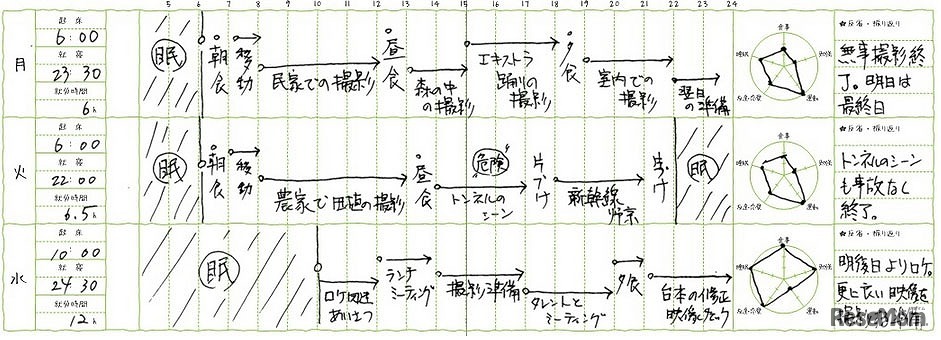 5 6 7 8 9 10 11 12 13 14 15 16 17 18 19 20 21 22 23 24
月
起床
6:00
就寝
23:30
就労時間
6h
眠
朝食
移動
民家での撮影
昼食
森の中の撮影
エキストラ
踊りの撮影
夕食
室内での撮影
翌日の準備
食事
運動
睡眠
★反省・振り返り
無事撮影終
了。明日は
最終日
火
起床
6:00
就寝
22:00
就労時間
6.5h
眠
朝食
移動
農家で田植の撮影
昼食
危険
トンネルの
シーン
片づけ
新幹線
帰京
眠
食事
運動
★反省・振り返り
トンネルのシーン
も事故なく
終了。
水
起床
10:00
就寝
24:30
就労時間
12h
眠
ロケ関連
あいさつ
ランチ
ミーティング
撮影準備
タレントと
ミーティング
夕食
台本の修正
映像チェック
食事
睡眠
運動
★反省・振り返り
明後日よりロケ。
更に良い映像を
ReseMom